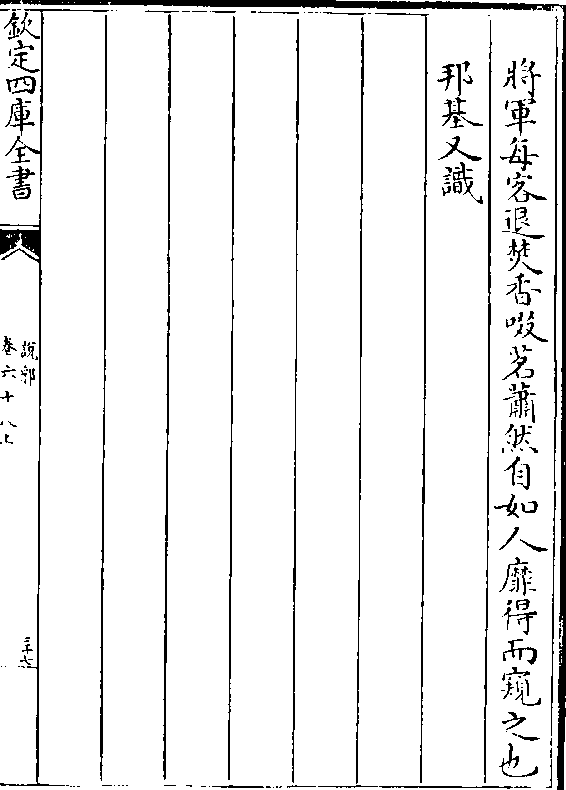 將軍每客退焚香啜茗蕭然自如人靡得而窺之也
邦基又識
欽定四庫全書
說郛
卷六十八上
三十七